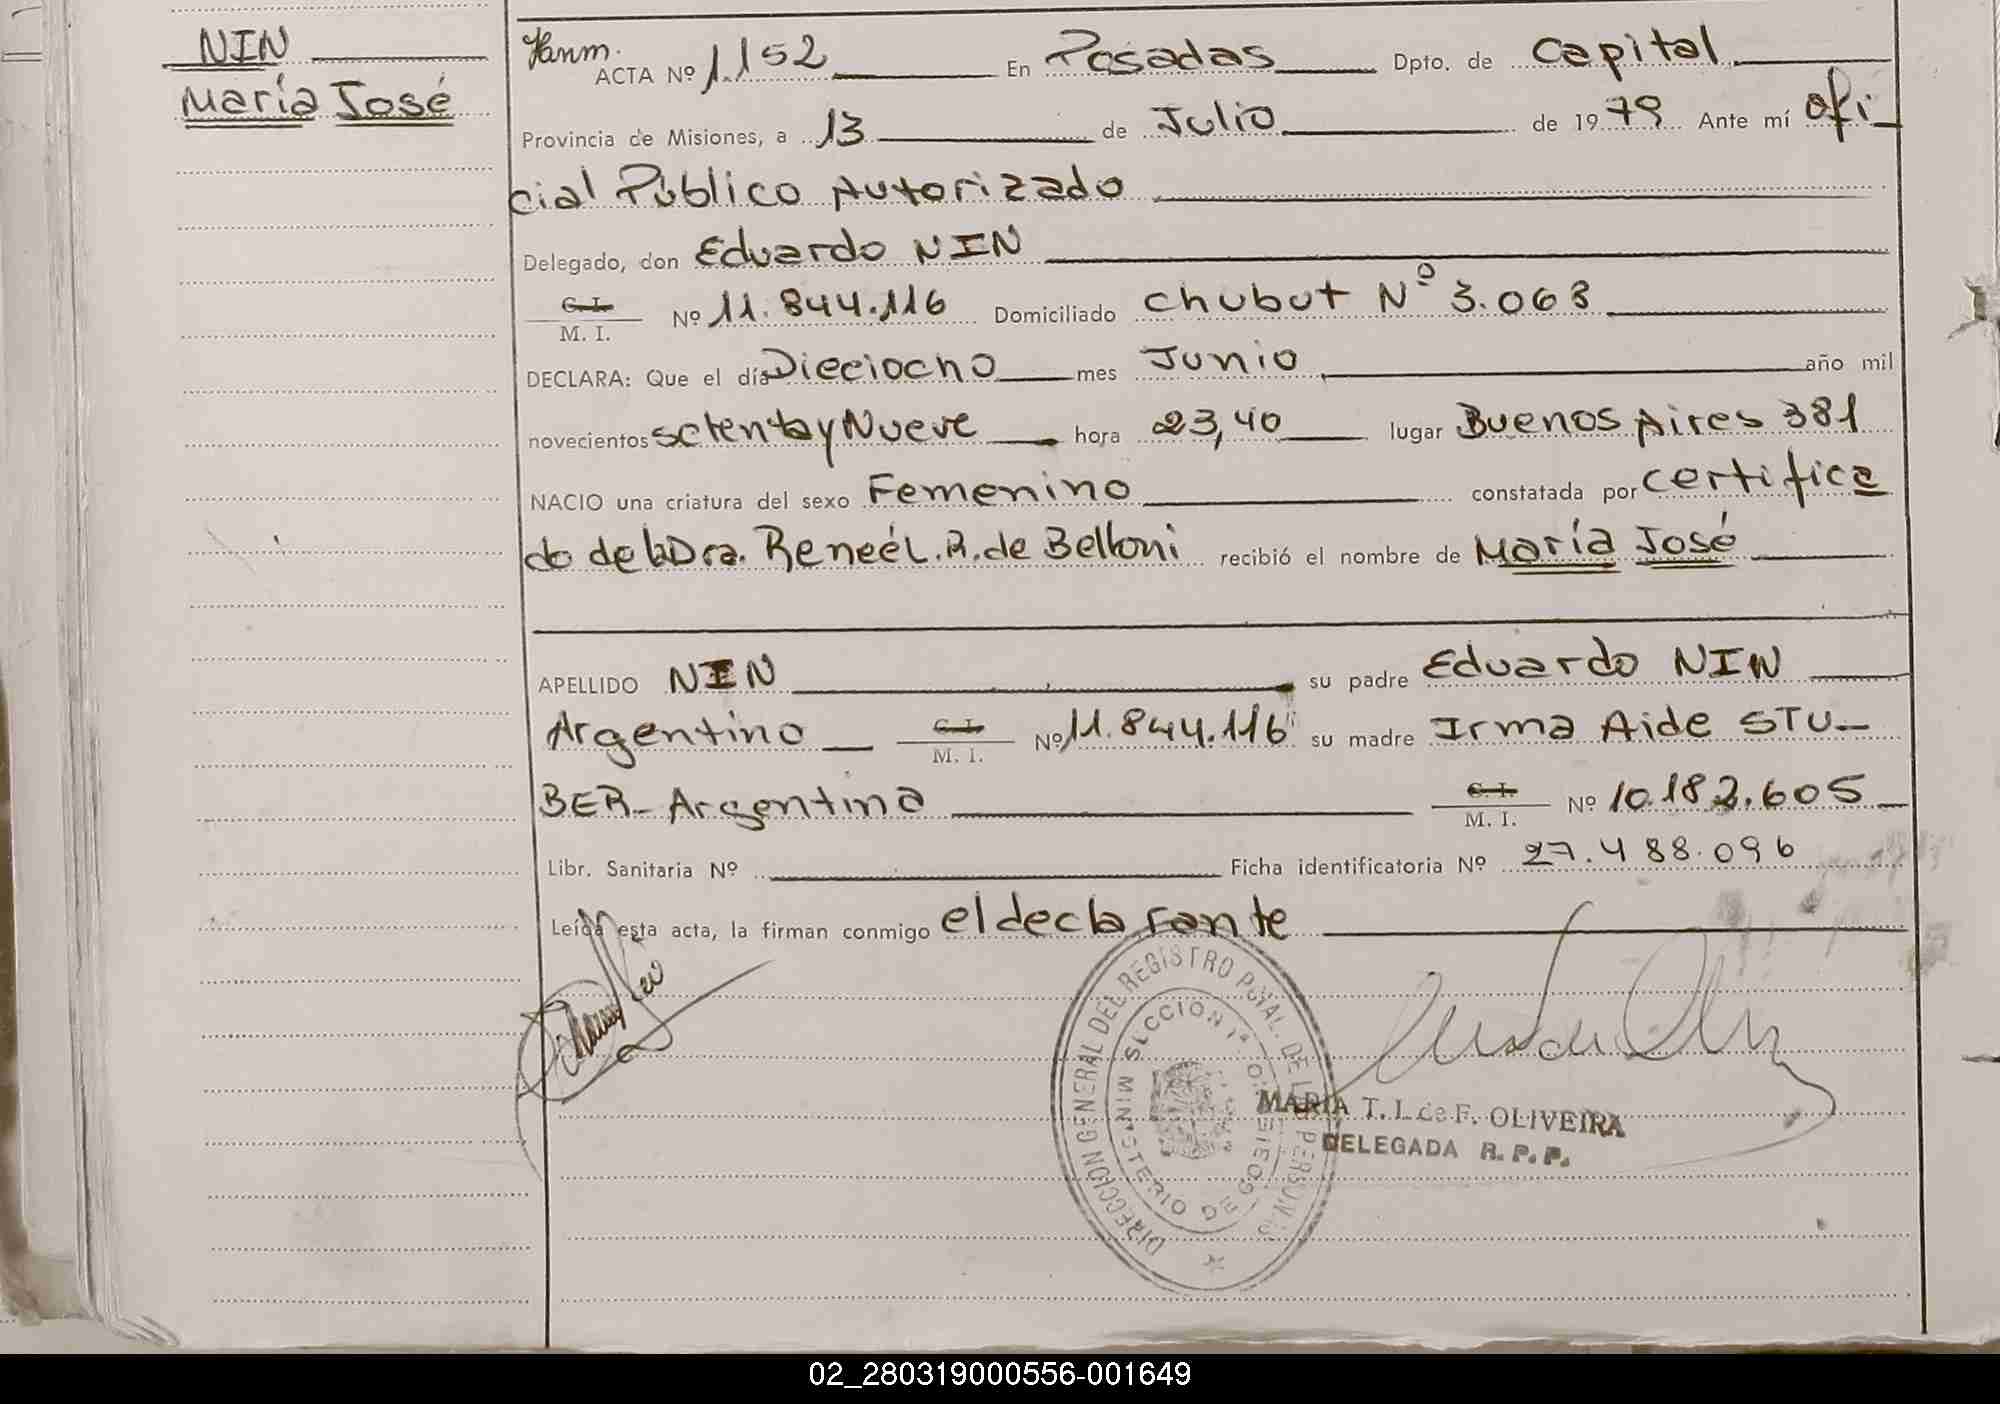 NIN
María José
Hanm.
ACTA Nº 1.152 En Posadas Dpto. de Capital
Provincia de Misiones, a 13 de Julio de 1979 Ante mí ofi
cial Público Autorizado
Delegado, don Eduardo NIN
C. I.
M. I. Nº 11.844.116 Domiciliado Chubut Nº 3.063
DECLARA: Que el día Dieciocho mes Junio año mil
novecientos setenta y Nueve hora 23,40 lugar Buenos Aires 381
NACIO una criatura del sexo Femenino constatada por certifica
do de la Dra. Reneé L. R. de Belloni recibió el nombre de María José
APELLIDO NIN su padre Eduardo NIN
Argentino C. I.
M. I. Nº 11.844.116 su madre Irma Aide STU-
BER- Argentina C. I.
M. I. Nº 10.182.605
Libr. Sanitaria Nº Ficha identificatoria Nº 27.488.096
Leída esta acta, la firman conmigo el declarante
DIRECCIÓN GENERAL DEL REGISTRO PCIAL. DE LAS PERSONAS
MINISTERIO DE GOBIERNO
SECCION 1ª
MARIA T. L. de F. OLIVEIRA
DELEGADA R. P. P.
02_280319000556-001649